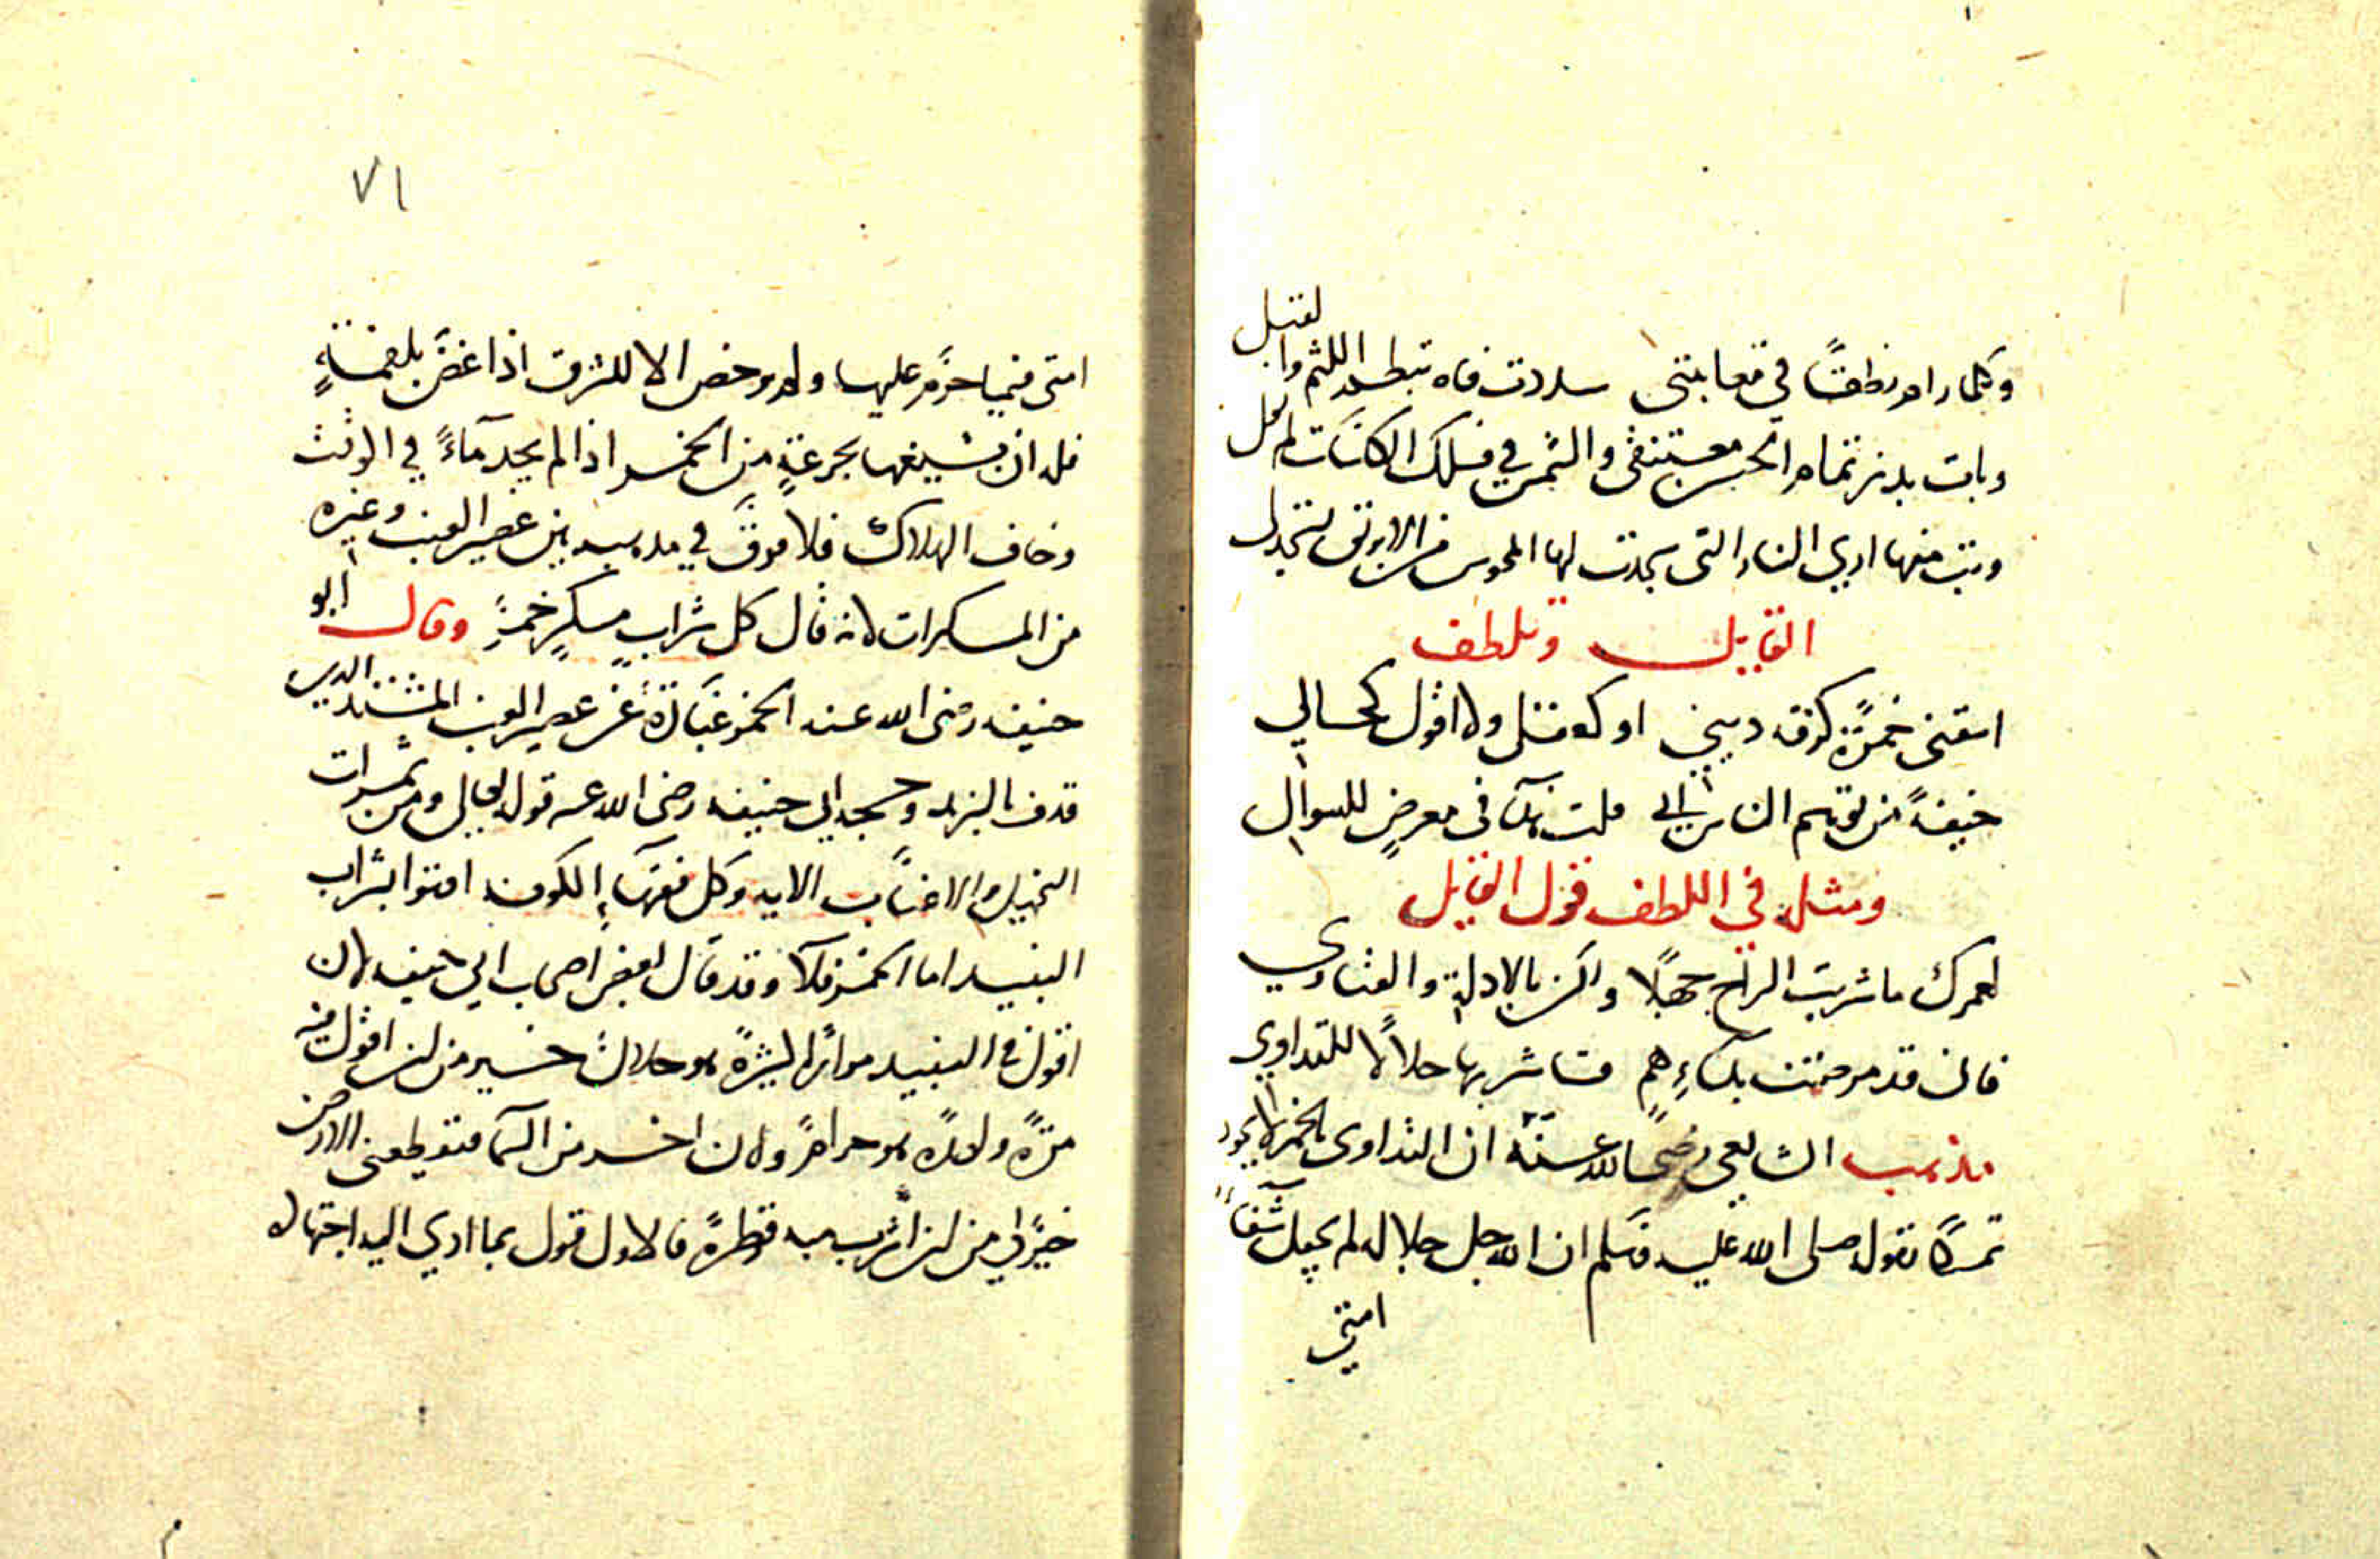 وكلما رام نطقًا في معاتبتي سددت فاه بطيب اللثم والقبل
وبات بدر تمام الحسن معتنقي والشمس في فلك الكاسات لم تحل
وبت منها اري النار التي سجدت لها المجوس من الابريق تنجدل
القايل وتلطف
اسقني خمرة كرقة ديني او كعقلي ولا اقول كحالي
خيفة من توهم الناس اني قلت هذا في معرض للسوال
ومثله في اللطف قول القايل
لعمرك ما شربت الراح جهلًا ولكن بالادلة والفتاوي
فاني قد مرضت بداء هم فاشربها حلالًا للتداوي
مذهب الشافعي رضي الله عنه ان التداوي بالخمر لا يجوز
تمسكًا بقوله صلى الله عليه وسلم ان الله جل جلاله لم يجعل شفاء
امتي
٧١
امتي فيما حرم عليها ولم يرخص الا للشرق اذا غص بلقمة
فله ان يسيغها بجرعة من الخمر اذا لم يجد ماءً في الوقت
وخاف الهلاك فلا فرق في مذهبه بين عصير العنب وغيره
من المسكرات لانه قال كل شراب مسكر خمر وقال ابو
حنيفه رضي الله عنه الخمر عبارة عن عصير العنب المشتد الذي
قذف بالزبد وحجه ابي حنيفه رضي الله عنه قوله تعالى ومن ثمرات
النخيل والاعناب الايه وكل فقهاء الكوفه افتوا بشراب
النبيذ اما الخمر فلا وقد قال بعض اصحاب ابي حنيفه لان
اقول في النبيذ مرارًا كثيرة هو حلال خير من ان اقول فيه
مرةً واحدة هو حرام ولان اخر من السما فتقطعني الارض
خير لي من ان اشرب منه قطرة فالاول قول بما ادي اليه اجتهاده